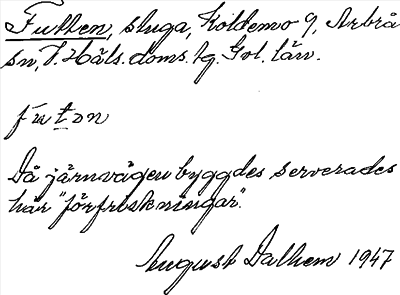 Futten, stuga, Koldemo 9, Arbrå
sn, V. Häls. doms. tg. Gvl. län.
fu̇tən
Då järnvägen byggdes serverades
här "förfriskningar".
August Dalhem 1947